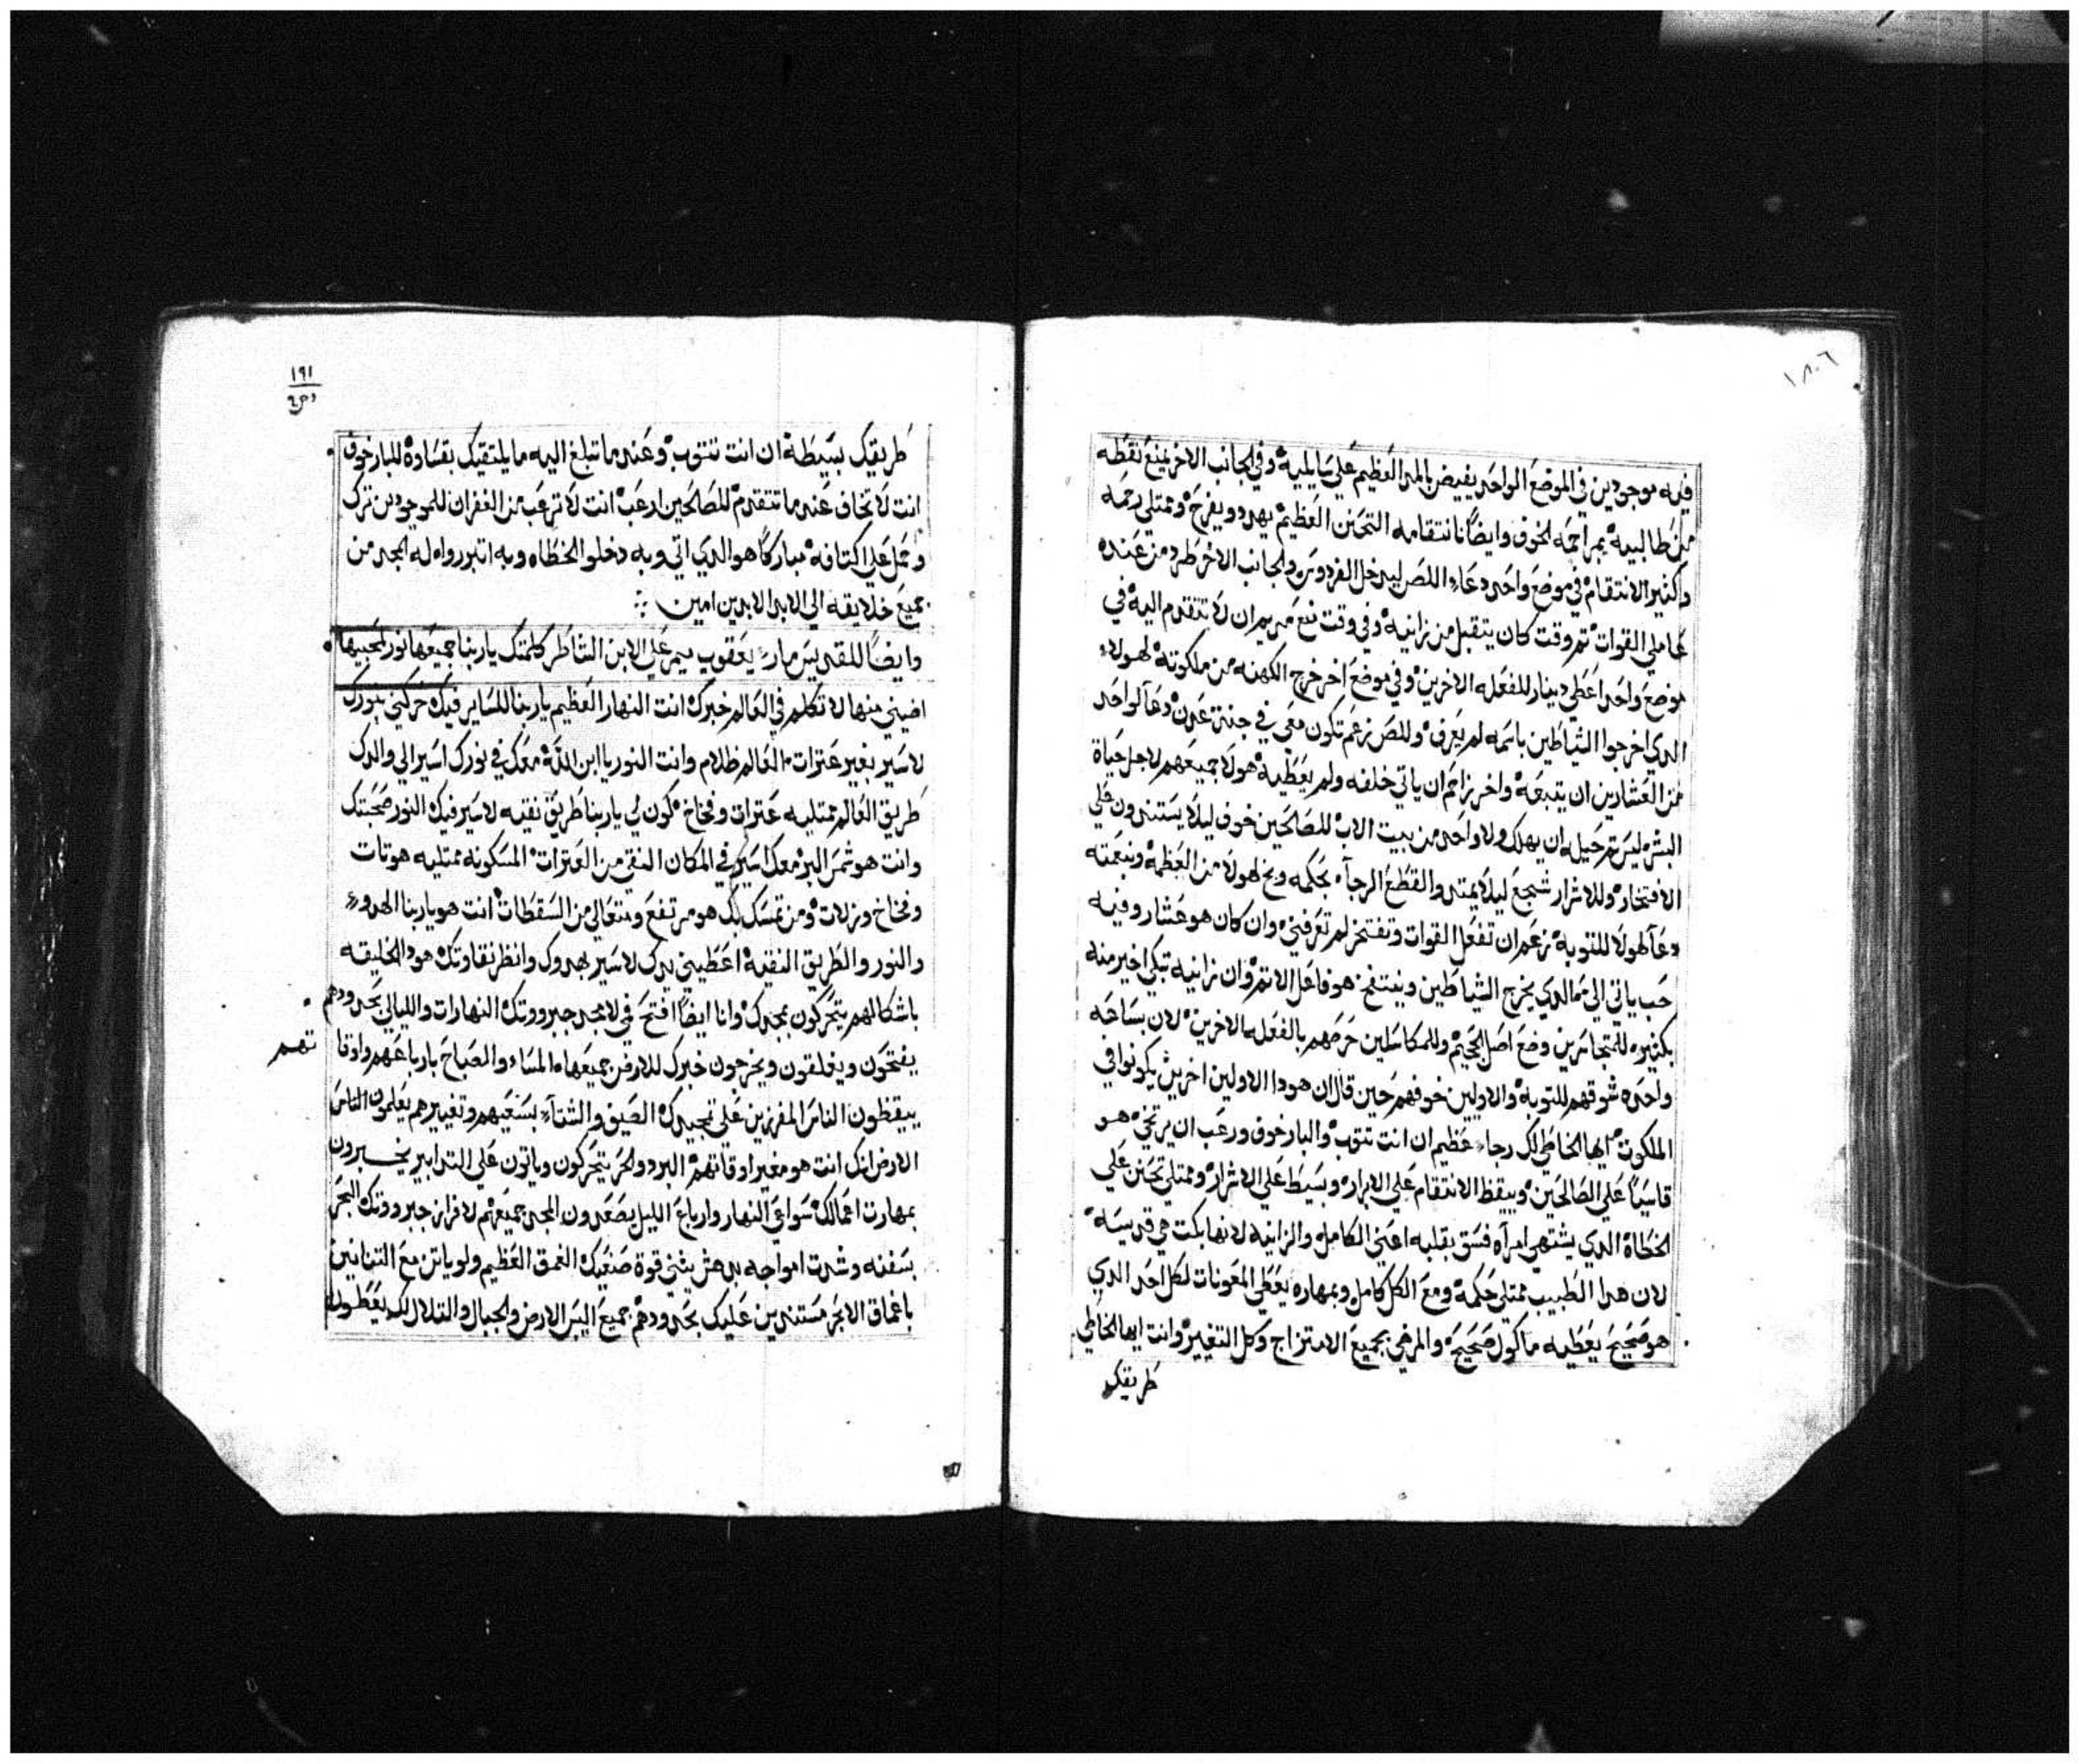 ١٨٠٦
فيه موجودين في الموضع الواحد يفيض بالمد العظيم علي سايليه وفي الجانب الاخر يمنع نقطه
من طالبيه بمراحمه الخوف وايضًا نانتقامه التحنن العظيم يهدد ويفرح وممتلي رحمه
وكثير الانتقام في موضع واحد دعاء اللص ليدخل الفردوس والجانب الاخر طرد من عنده
عاملي القوات ثم وقت كان يتقبل من زانيه وفي وقت منع مريم ان لا تتقدم اليه في
موضع واحد اعطي دينار للفعله الاخرين وفي موضع اخر خرج الكهنه من ملكوته لهولاء
الدي اخرجوا الشياطين باسمه لم يعرف وللص زعم تكون معي في جنة عدن دعا لواحد
من العشارين ان يتبعه واخر زاحم ان ياتي خلفه ولم يعطيه هولا جميعهم لاجل حياة
البشر ليس ثم حيله ان يهلك ولا واحد من بيت الاب للصالحين خوف ليلا يستندون علي
الافتخار وللاشرار شجع ليلا يمتدوا لقطع الرجاء بحكمه ونح لهولا من العظمه وبنعمته
دعا لهولا للتوبه زعم ان تفعل القوات وتفتخر لم تعرفني وان كان هو عشار وفيه
حب ياتي الي ثم الدي يخرج الشياطين وينتفخ هو فاعل الاثم وان زانيه تبكي اخير منه
بكثير للمتجاسرين وضع اصل الجحيم وللمكاسلين حرصهم بالفعله الاخرين لان بساحه
واحده شوقهم للتوبه والاولين خوفهم حين قال ان هودا الاولين اخرين يكونوا في
الملكوت ايها الخاطي لك رجاء عظيم ان انت تتوب والبار خوف ورعب ان يرتخي هو
قاسيًا علي الصالحين ويبقظ الانتقام علي الابرار وبسيط علي الاشرار وممتلي تحنن علي
الخطاة الدي يشتهي امرآه فسق بقلبه اعني الكامل والزانيه لانها بكت هي قديسه
لان هدا الطبيب ممتلي حكمه ومع الكل كامل وبمهاره يعطي المعونات لكل احد الدي
هو صحيح يعطيه ماكول صحيحه والمرضي بجميع الامتزاج وكل التغيير وانت ايها الخاطي
طريقك
١٩١
طريقك بسيطة ان انت تتوب وعندما تبلغ اليه ما يلتقيك بقساده للبار خوف
انت لا تخاف عندما تتقدم للصالحين ارعب انت لا ترعب من الغفران للموجودين ترك
وحمل علي اكتافه مباركًا هو الدي اتي وبه دخلوا الخطاه وبه اتبرروا له المجد من
جميع خلايقه الي الابد الابدين امين
وايضًا للقديس مار يعقوب ميمر علي الابن الشاطر كلمتك ياربنا جميعها نور لمحبيها
اضيني منها لاتكلم في العالم خبرك انت النهار العظيم ياربنا للساير فيك حركني بنورك
لاسير بغير عترات العالم ظلام وانت النور ياابن الله معك في نورك اسير الي والدك
طريق العالم ممتليه عترات وفخاخ كون لي ياربنا طريق نقيه لاسير فيك النور صحبتك
وانت هو شمس البر معك اسير في المكان النقي من العترات المسكونه ممتليه هوتات
وفخاخ وزلات ومن تمسك بك هو مرتفع ومتعالي من السقطات انت هو ياربنا الهدوء
والنور والطريق النقيه اعطيني يدك لاسير بهدوك وانظر نقاوتك هودا الخليقه
باشكالهم يتحركون بمجدك وانا ايضًا افتح في لامجد جبروتك النهارات والليالي بحدودهم
يفتحون ويغلقون ويخرجون خبرك للارض جميعها المساء والصباح بارباعهم واوقا تهم
ييقظون الناس المفرزين علي تمجيدك الصيف والشتاء بسنعيهم وتغييرهم يعلمون الناس
الارض انك انت هو مغير اوقاتهم البرد والحر يتحركون وياتون علي التدابير يخبرون
بمهارت اعمالك سواعي النهار وارباع الليل يصعدون المجد جميعهم لافراز جبروتك البحر
بسفنه وشدت امواجه يدهش يثني قوة صنعيك الغمق العظيم ولوياتن مع التنانين
باغماق الابحر مستندين عليك بحدودهم جميع اليبس الارض والجبال والتلال لك يعطون